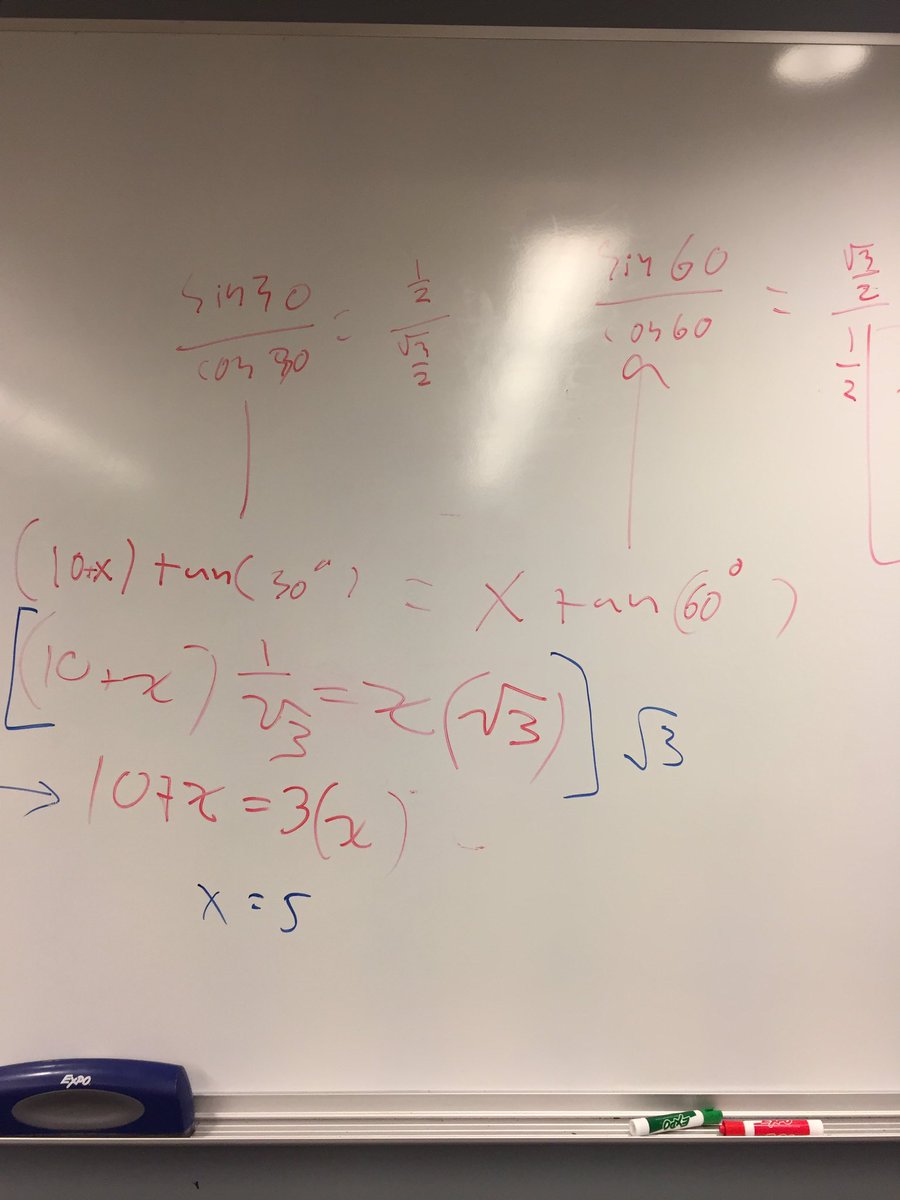 sin30 / cos30 = (1/2) / (√3/2)
sin60 / cos60 = (√3/2) / (1/2)
(10+x) tan(30°) = x tan(60°)
[(10+x) 1/√3 = x(√3)] √3
→ 10+x = 3(x)
x = 5
EXPO
EXPO
EXPO